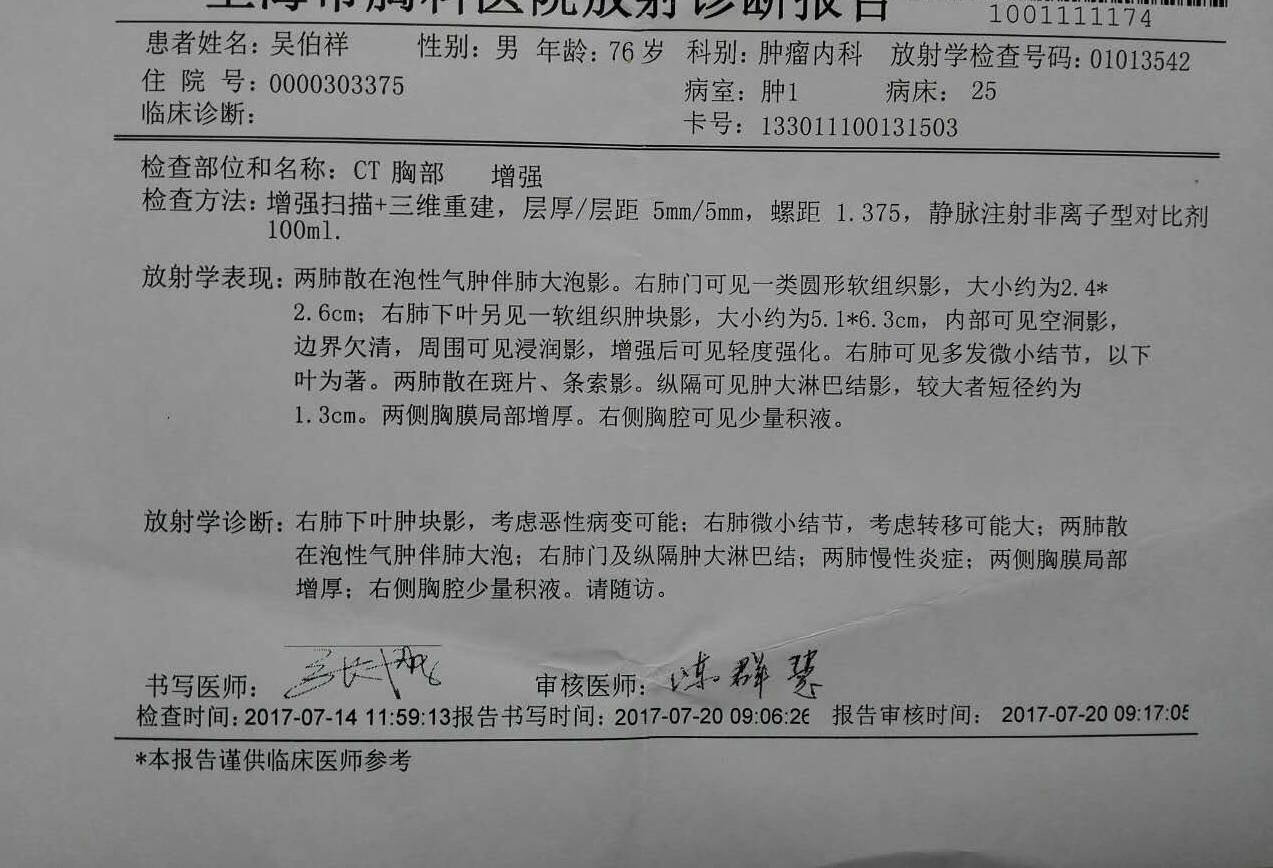 上海市胸科医院放射诊断报告
1001111174
患者姓名: 吴伯祥 性别: 男 年龄: 76岁 科别: 肿瘤内科 放射学检查号码: 01013542
住 院 号: 0000303375 病室: 肿1 病床: 25
临床诊断: 卡号: 133011100131503
检查部位和名称: CT 胸部 增强
检查方法: 增强扫描+三维重建, 层厚/层距 5mm/5mm, 螺距 1.375, 静脉注射非离子型对比剂
100ml.
放射学表现: 两肺散在泡性气肿伴肺大泡影。右肺门可见一类圆形软组织影, 大小约为2.4*
2.6cm; 右肺下叶另见一软组织肿块影, 大小约为5.1*6.3cm, 内部可见空洞影,
边界欠清, 周围可见浸润影, 增强后可见轻度强化。右肺可见多发微小结节, 以下
叶为著。两肺散在斑片、条索影。纵隔可见肿大淋巴结影, 较大者短径约为
1.3cm。两侧胸膜局部增厚。右侧胸腔可见少量积液。
放射学诊断: 右肺下叶肿块影, 考虑恶性病变可能; 右肺微小结节, 考虑转移可能大; 两肺散
在泡性气肿伴肺大泡; 右肺门及纵隔肿大淋巴结; 两肺慢性炎症; 两侧胸膜局部
增厚; 右侧胸腔少量积液。请随访。
书写医师: 审核医师: 群慧
检查时间: 2017-07-14 11:59:13报告书写时间: 2017-07-20 09:06:26 报告审核时间: 2017-07-20 09:17:05
*本报告谨供临床医师参考